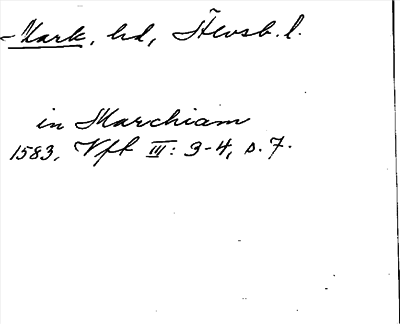 -Mark, hd, Älvsb. l.
in Marchiam
1583, Vfk III: 3-4, s. 7.